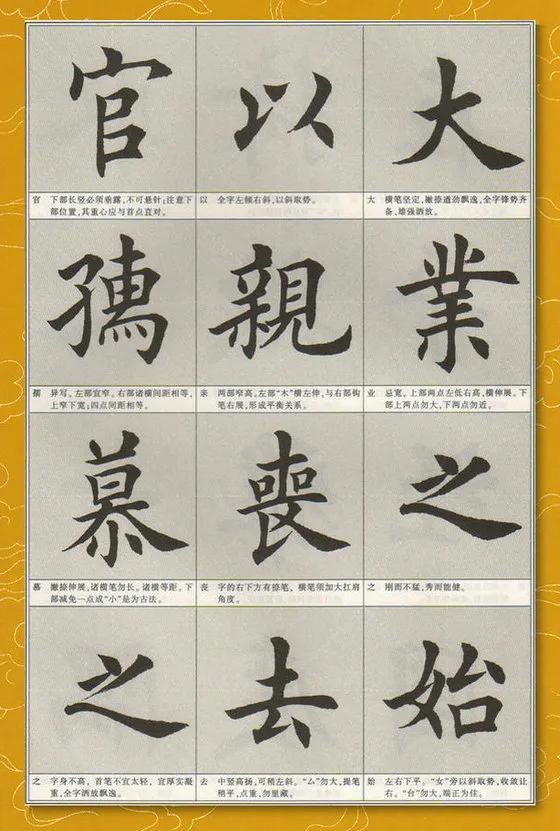 大
大 横笔坚定,撇捺遒劲飘逸,全字锋势齐
备,雄强洒放。
業
业 忌宽。上部两点左低右高,横伸展。下
部上两点勿大,下两点勿近。
之
之 刚而不猛,秀而能健。
始
始 左右下平。“女”旁以斜取势,收敛让
右。“台”勿大,端正为佳。
以
以 全字左倾右斜,以斜取势。
親
亲 两部窄高,左部“木”横左伸,与右部钩
笔右展,形成平衡关系。
喪
丧 字的右下方有捺笔,横笔须加大扛肩
角度。
去
去 中竖高扬,可稍左斜。“厶”勿大,提笔
稍平,点重,勿里藏。
官
官 下部长竖必须垂露,不可悬针;注意下
部位置,其重心应与首点直对。
孺
孺 异写。左部宜窄。右部诸横间距相等,
上窄下宽;四点间距相等。
慕
慕 撇捺伸展,诸横笔勿长。诸横等距。下
部减免一点成“小”是为古法。
之
之 字身不高,首笔不宜太轻,宜厚实凝
重,全字洒放飘逸。